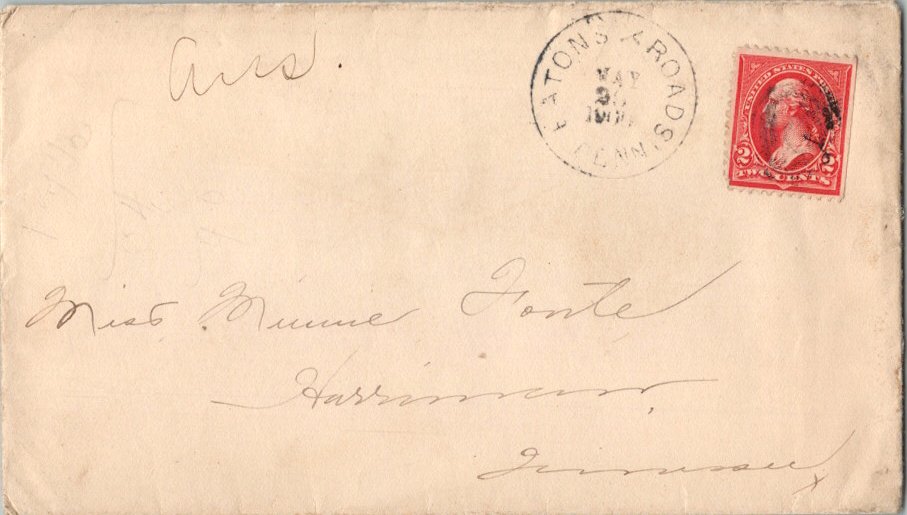 Ans.
EATONS XROADS,
MAY
TENN.
UNITED STATES POSTAGE
2 2
TWO CENTS
Miss Minnie Foute
Harriman,
Tennessee
x